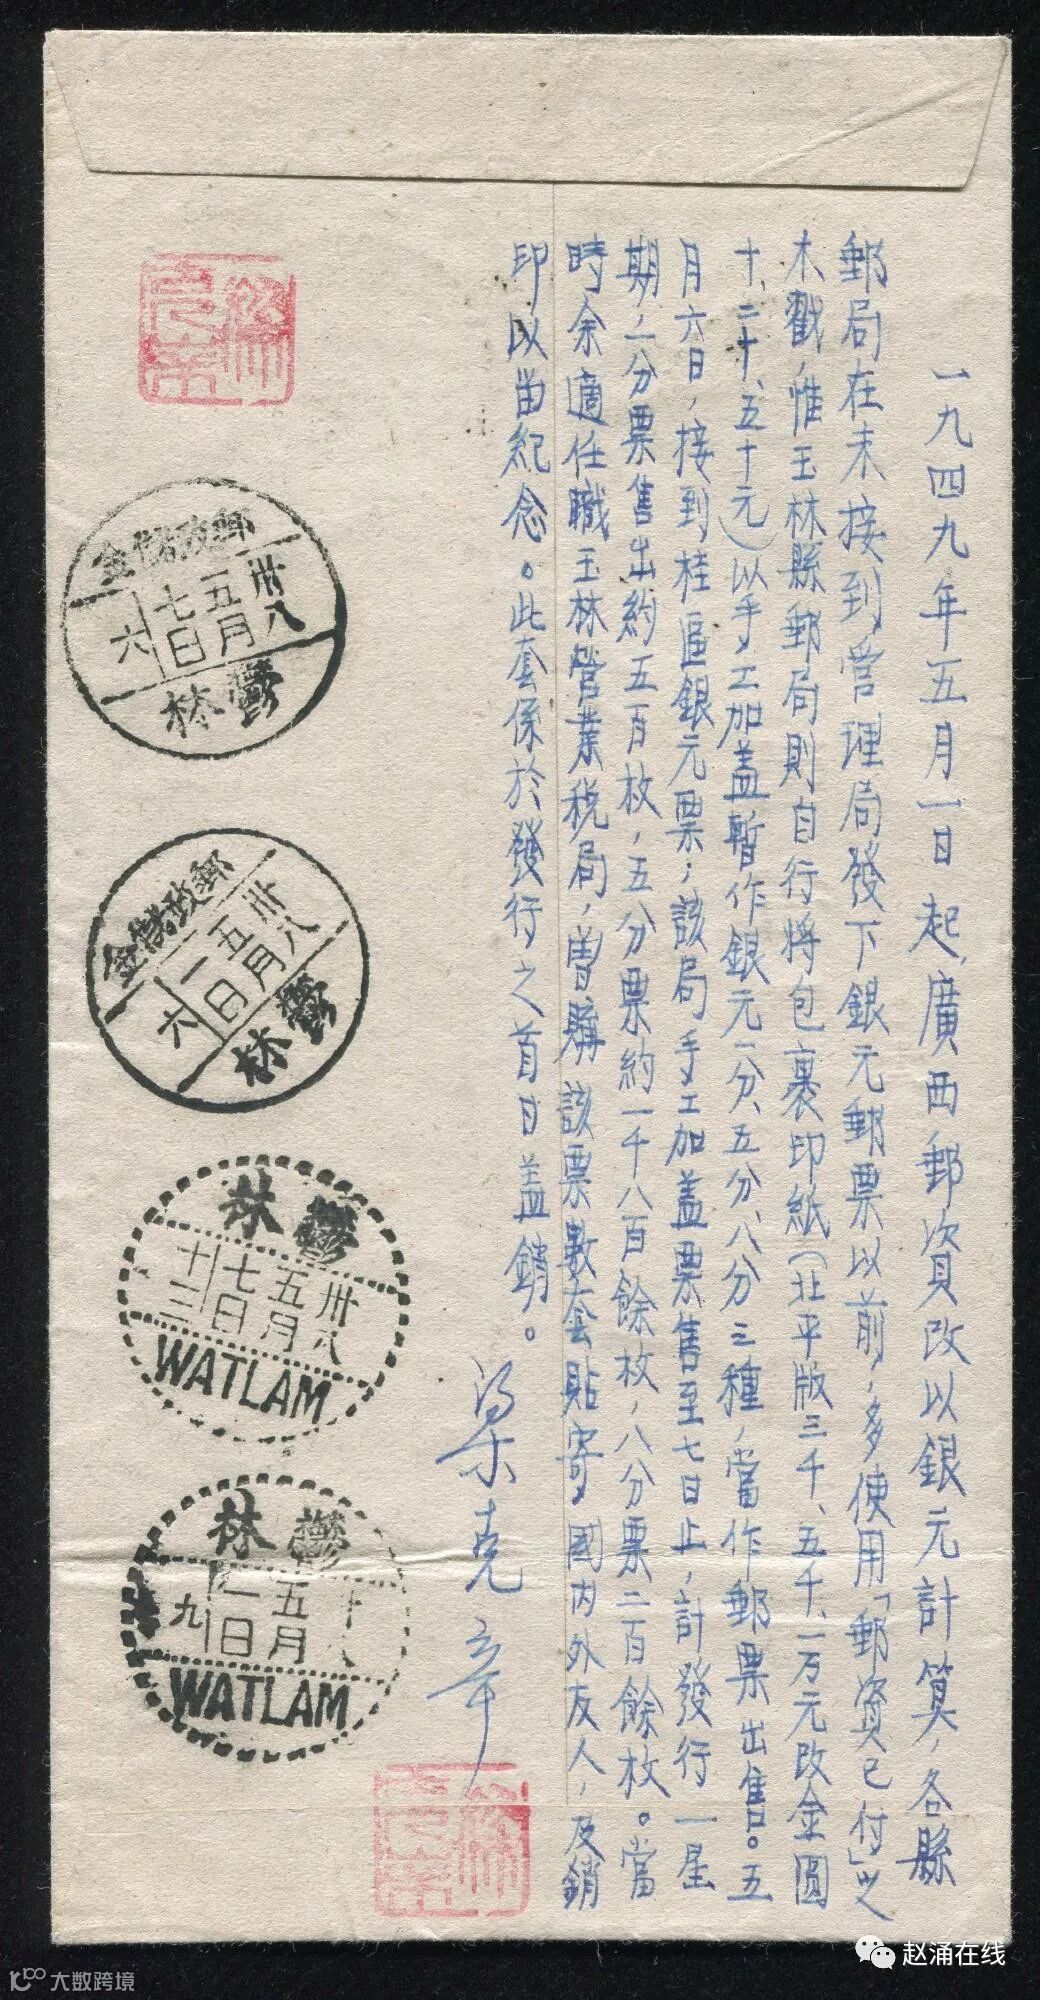 一九四九年五月一日起，廣西郵資改以銀元計算，各縣
郵局在未接到管理局發下銀元郵票以前，多使用「郵資已付」之
木戳，惟玉林縣郵局則自行將包裹印紙（北平版三千、五千、一万元改金圓
十、二十、五十元）以手工加盖暫作銀元一分、五分、八分三種，當作郵票出售。五
月六日，接到桂區銀元票；該局手工加盖票售至七日止，計發行一星
期，一分票售出約五百枚，五分票約一千八百餘枚，八分票二百餘枚。當
時余適任職玉林營業税局，曾購該票數套貼寄國内外友人，及銷
印以留紀念。此套係於發行之首日盖銷。
梁克章
郵政儲金
卅八
五月
七日
六
鬱林
郵政儲金
卅八
五月
一日
六
鬱林
鬱林
卅八
五月
七日
十三
WATLAM
鬱林
五月
一日
九
WATLAM
赵涌在线
大数跨境